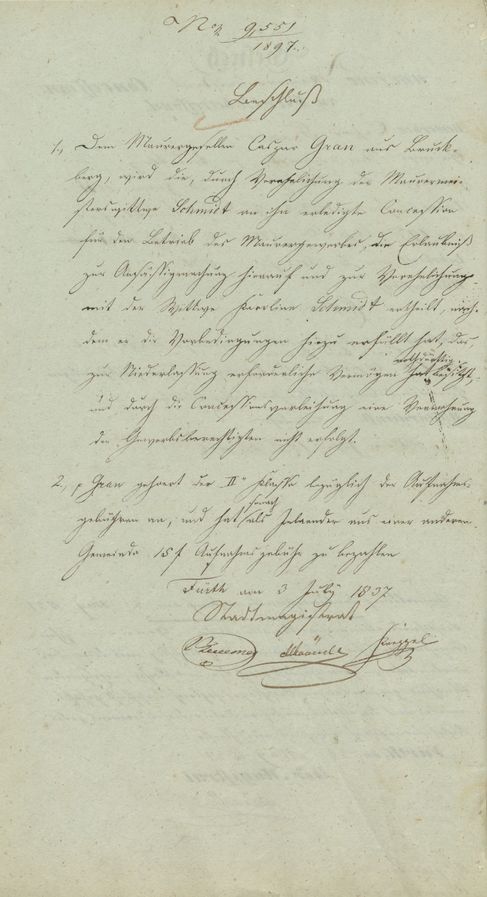 No. 9551
1897.
Beschluß
1., Dem Maurergesellen Caspar Gran aus Bruck-
berg, wird die, durch Verehelichung der Maurermei-
sterswittwe Schmidt an ihn erledigte Concession
für den Betrieb des Maurergewerbes, die Erlaubniß
zur Ansässigmachung hierauf und zur Verehelichung
mit der Wittwe Karolina Schmidt ertheilt, nach-
dem er die Vorbedingungen hiezu erfüllt hat, das
zur Niederlassung erforderliche Vermögen hat
und durch die Concessionsverleihung eine Vermehrung
der Gewerbsberechtigten nicht erfolgt.
2., p Gran gehoert der II. Klasse bezüglich der Aufnahms-
gebühren an, und hat hienach als Inlaender aus einer anderen
Gemeinde 15 f Aufnahmsgebühr zu bezahlen
Fürth am 3 July 1837
Stadtmagistrat